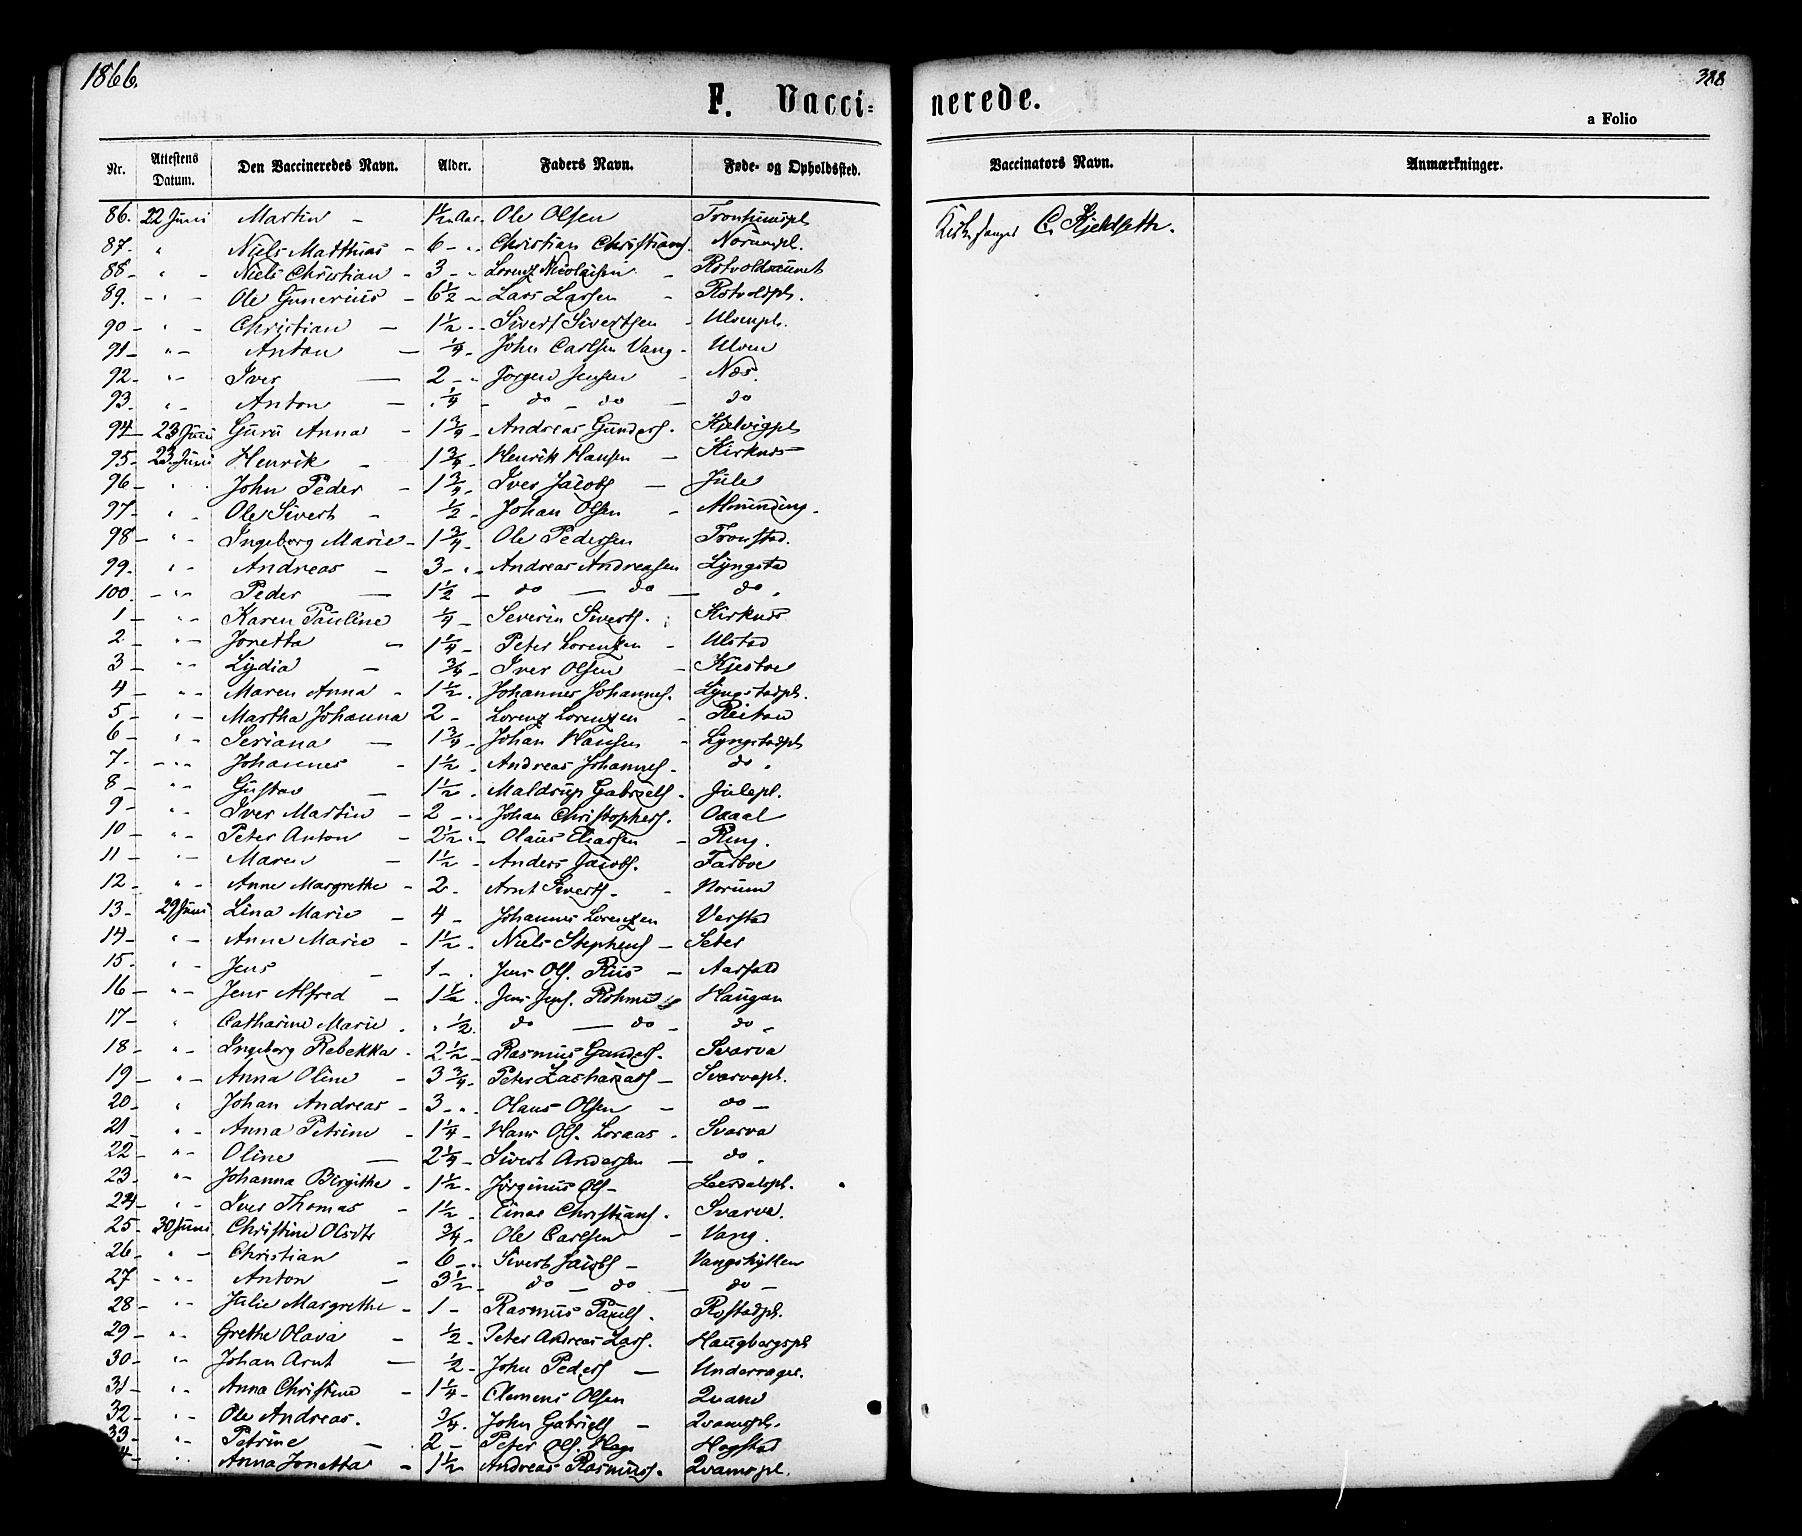 1866.
388
F. Vacci-
nerede.
a Folio
Nr. Attestens Datum. Den Vaccineredes Navn. Alder. Faders Navn. Føde- og Opholdssted.
Vaccinators Navn. Anmærkninger.
86. 22 Juni Martin - 1½ Aar. Ole Olsen
Kirkesanger C.
87. " Niels Matthias - 6 - " Christian Christians. Norumpl.
88 - " - Niels Christian - 3 - " Lorenz Nicolaisen - Rotvoldaunet
89. - " - Ole Gunerius - 6½ - Lars Larsen - Rotvoldpl.
90 - " - Christian - 1½ - " Sivert Sivertsen - Ulvenpl.
91 - " - Anton - ¼ - John Carlsen Vang - Ulven
92. - " - Iver - 2 - " Jørgen Jensen - Næs.
93. " - Anton - " ¼ - do - do - do
94 - 23 Juni Guru Anna - 1¾ - Andreas Gunders. Kjelvigpl
95 - 23 Juni Henrik - 1¾ - Henrik Hansen - Kirknes
96 - " John Peder - 1¾ - Iver Jacobs - Jule
97 - " - Ole Sivert - ½ - Johan Olsen - Alminding.
98 - " - Ingeborg Marie - 1¾ - Ole Pedersen Tronstad.
99. " - Andreas - 3 - " - Andreas Andreasen Lyngstad
100. - " - Peder - 1½ - do - do - do.
1 - " - Karen Pauline ¼ - Severin Siverts. Kirknes
2. " - Jonetta - 1¼ - Peter Lorenzen - Ulstad
3 - " - Lydia - ¾ - Iver Olsen -
4 - " - Maren Anna - 1½ . Johannes Johannes. Lyngstadpl.
5 - " - Martha Johanna 2 - Lorenz Lorenzen - Reitan
6 - " - Seriana - 1¾ - Johan Hansen - Lyngstadpl
7. - " - Johannes - 1½ - Andreas Johannes - do.
8 " - Gustav - 1½ - Maldrup Gabriels - Julepl.
9 - " - Iver Martin - 2 - " Johan Christophers. Odaal
10 - " - Peter Anton - 2½ " Olaus Eliassen - Ring.
11 - " - Maren - 1½ - Anders Jacobs. Tarboe
12 - " - Anne Margrethe - 2 - Arnt Siverts. - Norum
13 - 29 Juni Lina Marie - 4 - Johannes Lorenzen Verstad
14 - " - Anne Marie - 1½ . Niels Stephens - Seter
15 - " - Jens - 1 - . Jens Ols. Riis -
16 - " - Jens Alfred - 1½ . Jens Jens. Haugan
17 - " Catharine Marie . " ½ . do - do - do -
18 - " - Ingeborg Rebekka . 2½ - Rasmus Gunders. Svarva
19 - " - Anna Oline - 3¾ - Peter Zachariass - Svarvapl.
20 - " Johan Andreas - 3 - " . Olaus Olsen - do -
21 - " - Anna Petrine - 1¼ - Hans Ols. Loraas . Svarva
22 - " - Oline - 2¼ - Sivert Andersen - do.
23. - " - Johanna Birgithe - 1½ - Jørginus Ols - Leirdalspl.
24 - " - Iver Thomas - 1½ - Einar Christians. Svarva.
25 - 30 Juni Christine ¾ - Ole Carlsen - Vang.
26 - " - Christian - 6 - " Sivert Jacobs - Vangshyllen
27 - " - Anton - 3½ - do - do - do -
28 - " - Julie Margrethe - 1 - Rasmus Pauls. Rostadpl.
29 - " - Grethe Olava - ½ - Peter Andreas Lars. Haugbergspl
30 - " - Johan Arnt - ½ - John Peders -
31 - " - Anna Christine - 1¼ - Clemens Olsen Qvam
32 - " - Ole Andreas. ¾ . John Gabriels - Qvamspl.
33 - " - Petrine - 2 - Peter Ols. Hage Hogstad
" Anna Jonetta - 1½ Andreas Rasmuss. Qvamspl.